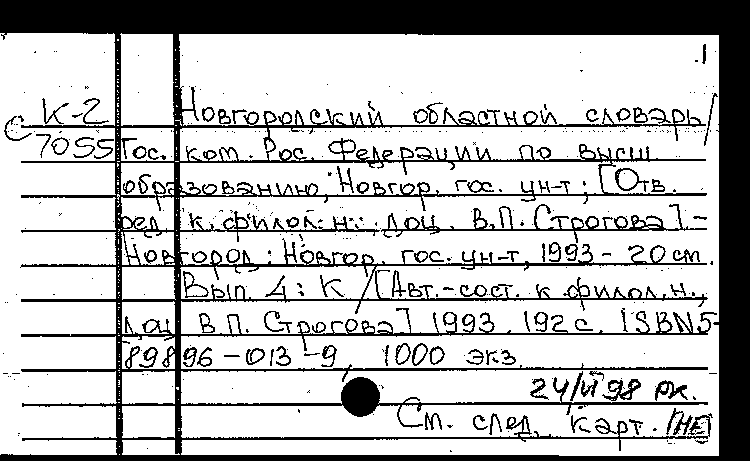 1
К-2 Новгородский областной словарь /
С 7055 Гос. ком. Рос. Федерации по высш.
образованию, Новгор. гос. ун-т; [Отв.
ред. к. филол. н., доц. В.П. Строгова] -
Новгород : Новгор. гос. ун-т, 1993 - 20 см.
Вып. 4: К / [Авт.-сост. к. филол. н.,
доц. В.П. Строгова]. 1993. 192 с. ISBN 5-
89896-013-9, 1000 экз.
24/VI 98 РК.
См. след. карт. [НЕ]